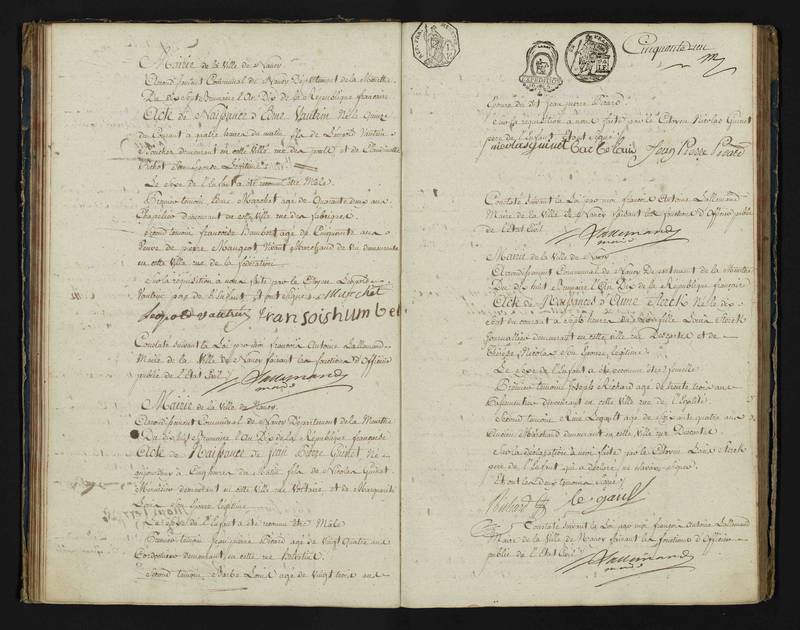 Mairie de la Ville de Nancy
Arrondissement Communal de Nancy Département de la Meurthe
Du dix Sept Brumaire l'An Dix de la République française
Acte de Naissance d'Aimé Vautrin Né le Quinze
du Courant à quatre heures du matin fils de Léopold Vautrin
demeurant en cette Ville rue et de
Le Sexe de l'Enfant a été reconnu être Mâle
Premier témoin Marchet age de Quarante deux ans
demeurant en cette Ville rue des fabriques
Second témoin françoise Humbert age de Cinquante ans
Veuve de pierre Mangeot Marchand de Vin demeurante
en cette Ville rue de la fédération
Sur la réquisition à nous faite par le Citoyen Léopold
Vautrin père de l'Enfant Et ont Signé Marchet
Leopold Vautrin fransois humbert
Constaté Suivant la Loi par moi françois Antoine Lallemand
Maire de la Ville de Nancy faisant les fonctions d'Officier
public de l'Etat Civil Lallemand
Mairie de la Ville de Nancy
Arrondissement Communal de Nancy Département de la Meurthe
Du dix huit Brumaire l'An Dix de la République française
Acte de Naissance de Jean Pierre Guinet Né
aujourdhui à Cinq heures du Matin fils de Nicolas Guinet
demeurant en cette Ville rue Voltaire et de Marguerite
Louis Son Epouse légitime
Le Sexe de l'Enfant a été reconnu être Mâle
Premier témoin Jean pierre Picard age de Vingt Quatre ans
Cordonnier demeurant en cette rue
Second témoin Barbe Louis age de Vingt trois ans
Cinquante un
Epouse du dit Jean pierre Picard
Sur la réquisition à nous faite par le Citoyen Nicolas Guinet
père de l'Enfant Et ont Signé
nicolas guinet barbe Louis Jean Pierre Picard
Constaté Suivant la Loi par moi françois Antoine Lallemand
Maire de la Ville de Nancy faisant les fonctions d'Officier public
de l'Etat Civil Lallemand
Mairie de la Ville de Nancy
Arrondissement Communal de Nancy Département de la Meurthe
Du dix huit Brumaire l'An Dix de la République française
Acte de Naissance d'Anne Sterk Née le dix
Sept du courant à Sept heures du fille Louis Sterk
Journallier demeurant en cette Ville rue Descartes et de
Thérèse Nicolas Son Epouse légitime
Le Sexe de l'Enfant a été reconnu être femelle
Premier témoin Joseph Richard age de trente trois ans
demeurant en cette Ville rue de l'Egalité
Second témoin Legault age de Soixante quatre ans
Ancien Marchand demeurant en cette Ville rue Descartes
Sur la déclaration à nous faite par le Citoyen Louis Sterk
père de l'Enfant qui a déclaré ne Savoir Signer
Et ont les deux témoins Signé
Richard le gault
Constaté Suivant la Loi par moi françois Antoine Lallemand
Maire de la Ville de Nancy faisant les fonctions d'Officier
public de l'Etat Civil
Lallemand